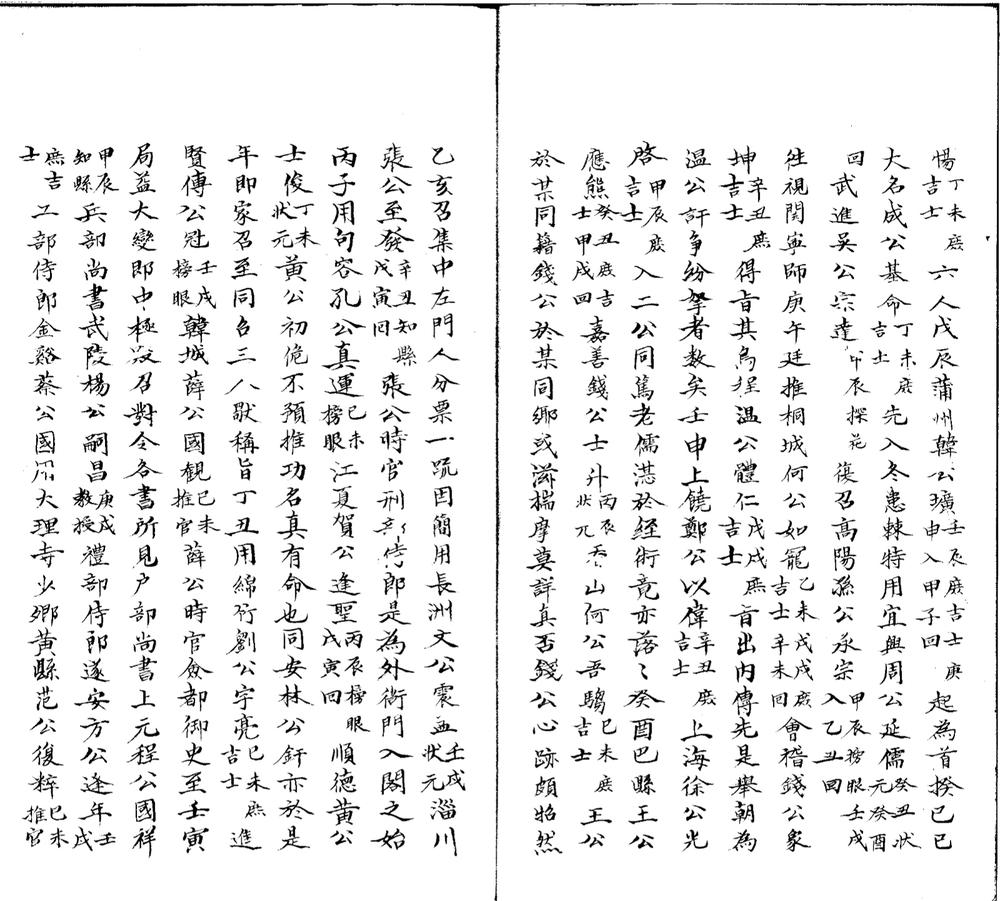 惕丁未庶吉士六人戊辰蒲州韓公爌壬辰庶吉士庚申入甲子回起為首揆己巳
大名成公基命丁未庶吉士先入冬患棘特用宜興周公延儒癸丑狀元癸酉
回武進吳公宗達甲辰探花復召高陽孫公承宗甲辰榜眼壬戌入乙丑回
往視関寧師庚午廷推桐城何公如寵乙未戊戌庶吉士辛未回會稽錢公象
坤辛丑庶吉士得旨其烏程温公體仁戊戌庶吉士旨出内傳先是舉朝為
温公訐争紛拏者数矣壬申上饒鄭公以偉辛丑庶吉士上海徐公光
啓甲辰庶吉士入二公同篤老儒湛於経術竟亦落〻癸酉巴縣王公
應熊癸丑庶吉士甲戌回嘉善錢公士升丙辰狀元香山何公吾騶己未庶吉士王公
於某同籍錢公於某同鄉或滋揣摩莫詳真否錢公心跡頗昭然
乙亥召集中左門人分票一䟽因簡用長洲文公震孟壬戌狀元淄川
張公至發辛丑知縣戊寅回張公時官刑部侍郎是為外衙門入閣之始
丙子用句容孔公貞運己未榜眼江夏賀公逢聖丙辰榜眼戊寅回順德黄公
士俊丁未狀元黄公初俛不預推功名真有命也同安林公釬亦於是
年即家召至同召三人獣稱旨丁丑用綿竹劉公宇亮己未庶吉士進
賢傅公冠壬戌榜眼韓城薛公國觀己未推官薛公時官僉都御史至壬寅
局益大變即中極殿召對令各書所見户部尚書上元程公國祥
甲辰知縣兵部尚書武陵楊公嗣昌庚戌教授禮部侍郎遂安方公逢年壬戌
庶吉士工部侍郎金谿蔡公國用大理寺少卿黄縣范公復粹己未推官